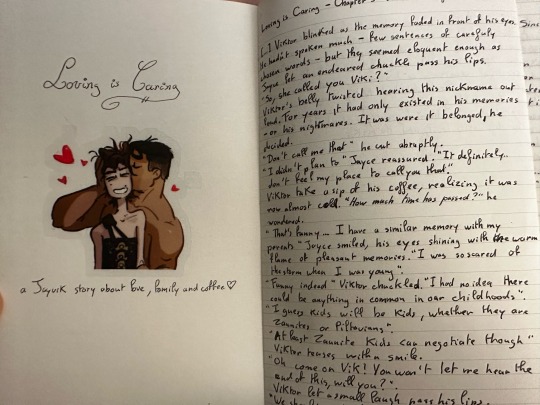 Loving is Caring
a Jayvik story about love, family and coffee♡
Loving is Caring - Chapter
[...] Viktor blinked as the memory faded in front of his eyes.
He hadn't spoken much - few sentences of carefuly
chosen words - but they seemed eloquent enough as
Jayce let an endeared chuckle pass his lips.
"So, she called you Viki?"
Viktor's belly twisted hearing this nickname out
loud. For years it had only existed in his memories
- or his nightmares. It was were it belonged, he
decided.
"Don't call me that" he cut abruptly.
"I didn't plan to" Jayce reassured. "It definitely..
don't feel my place to call you that".
Viktor take a sip of his coffee, realizing it was
now almost cold. "How much time has passed?" he
wondered.
"That's funny... I have a similar memory with my
parents" Jayce smiled, his eyes shining with the warm
flame of pleasant memories. "I was so scared of
the storm when I was young".
"Funny indeed" Viktor chuckled. "I had no idea there
could be anything in common in our childhoods".
"I guess kids will be kids, whether they are
Zaunites or Piltovians".
"At least Zaunite kids can negotiate though"
Viktor teases with a smile.
"Oh come on Vik! You won't let me hear the
end of this, will you?".
Viktor let a small laugh pass his lips.
"We